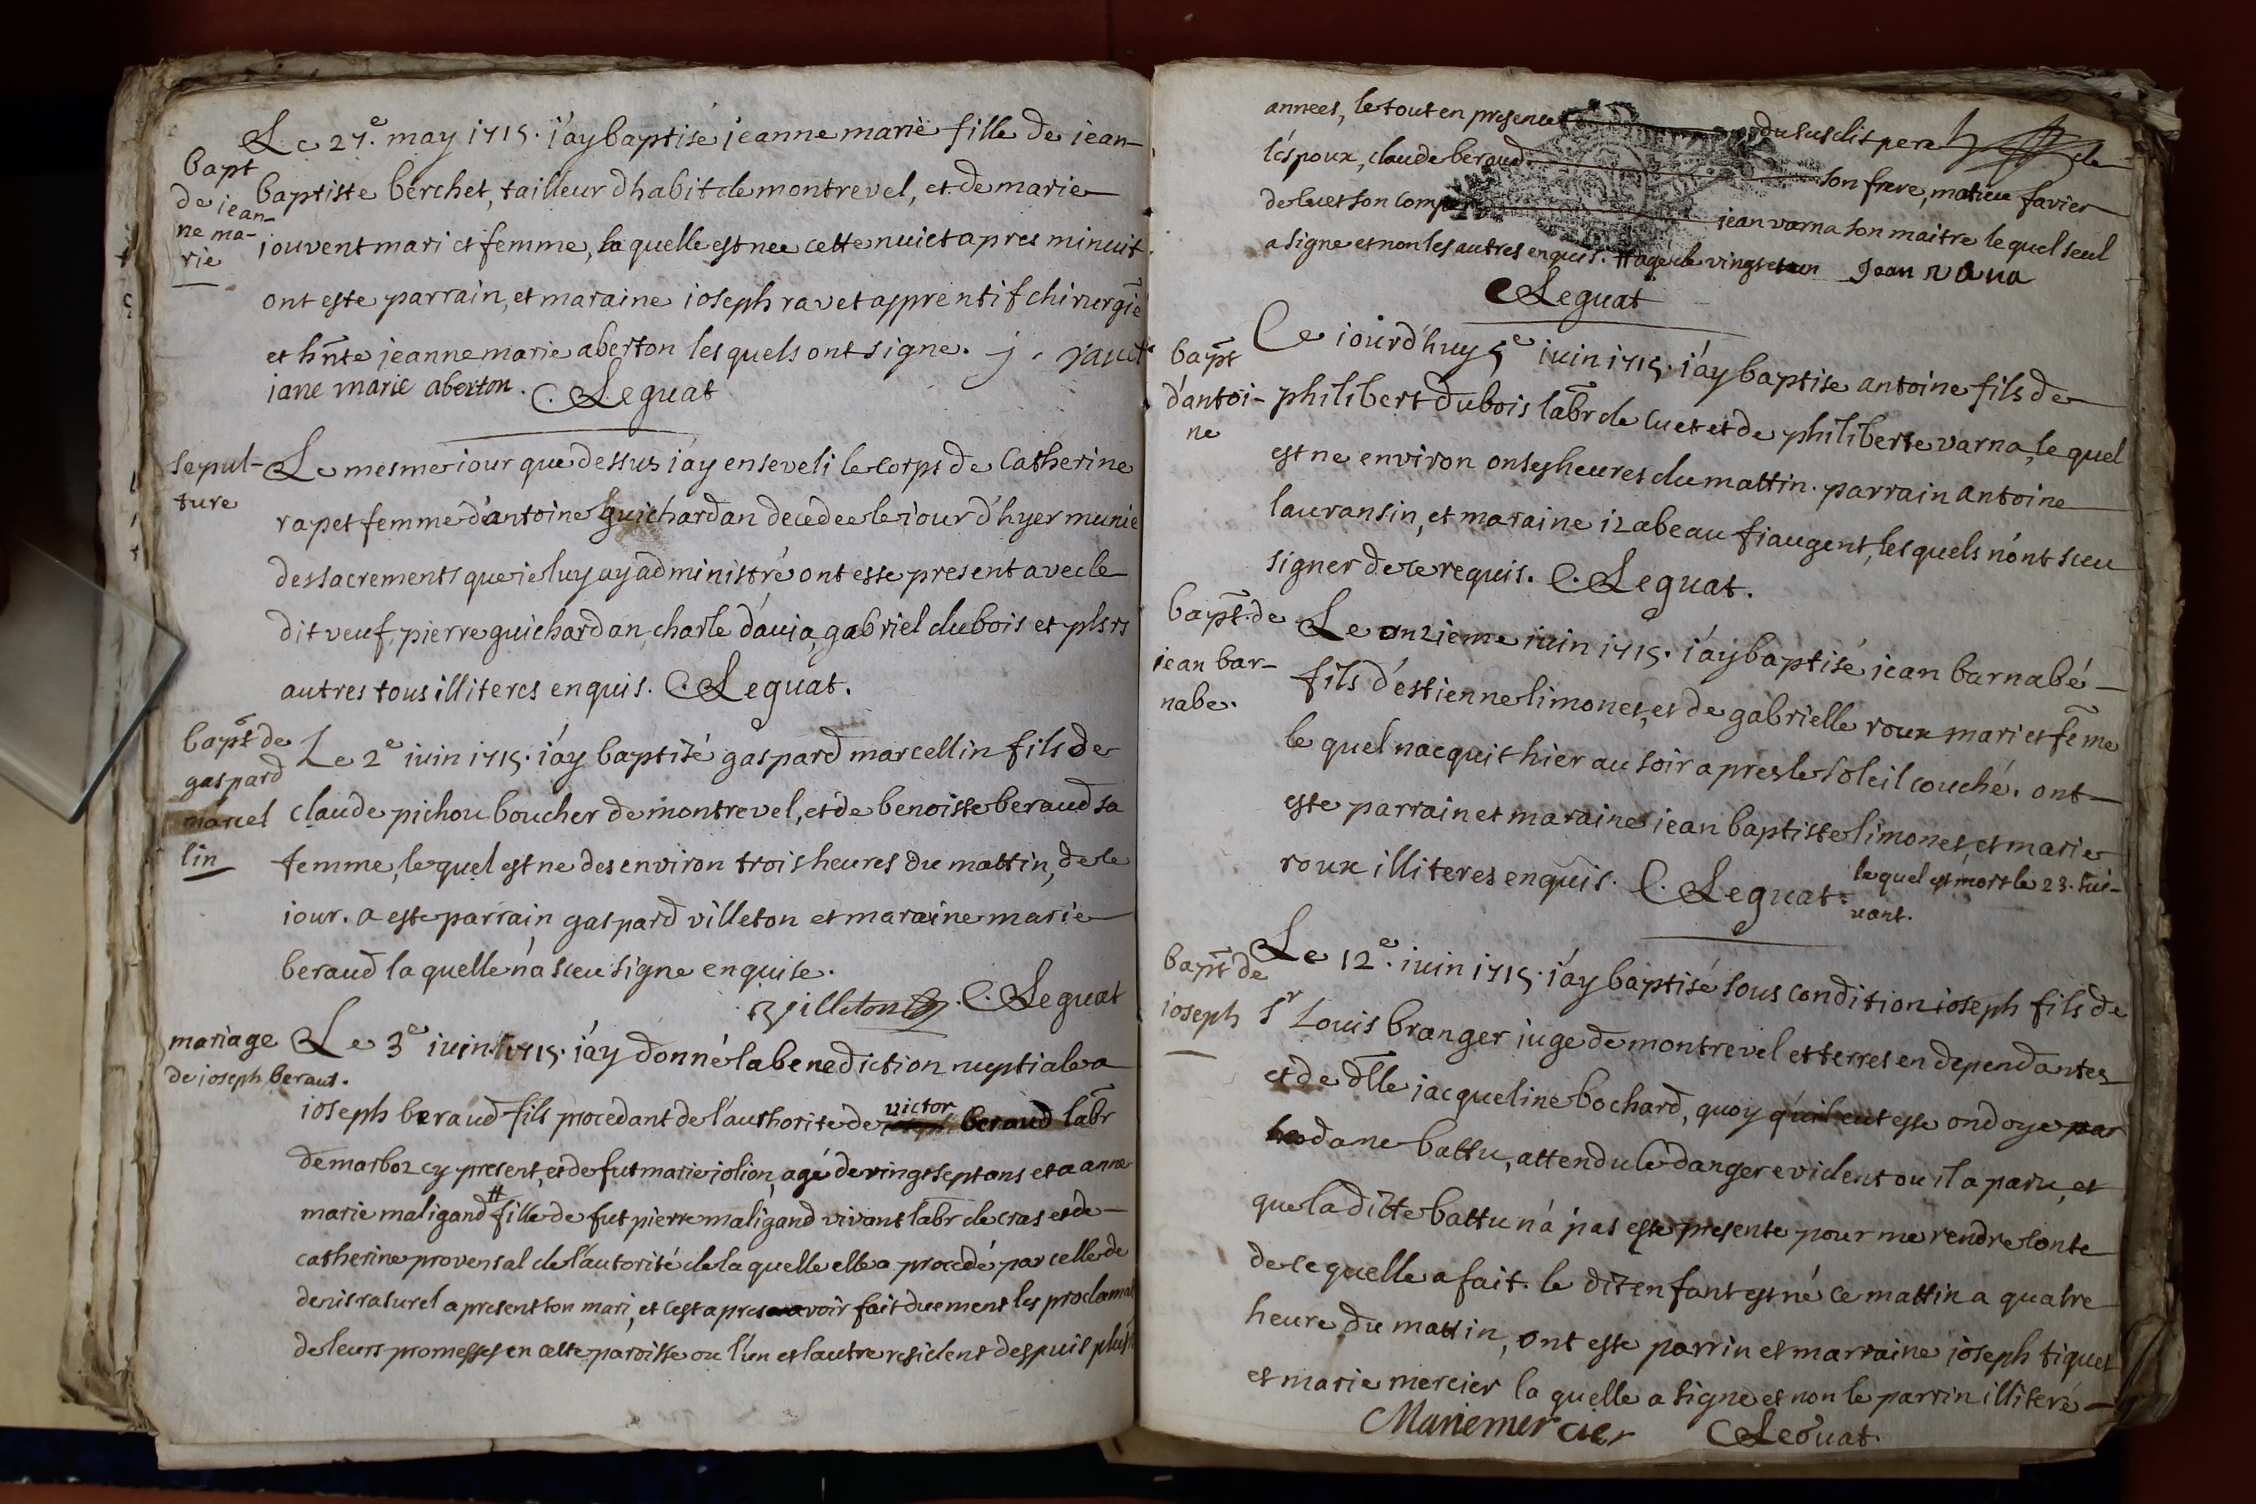 Le 27e. may 1715. i'ay baptisé jeanne marie fille de iean-
bapt
de iean-
ne ma-
rie
baptiste berchet, tailleur d'habit de montrevel, et de marie
iouvent mari et femme, la quelle est nee cette nuict apres minuit.
ont este parrain, et maraine ioseph ravet apprentif chirurgiē
et hñte jeanne marie aberton les quels ont signe. j. ravet
jane marie aberton. C. Leguat
sepul-
ture
Le mesme iour que dessus i'ay enseveli le corps de Catherine
rapet femme d'antoine guichardan decedee le iour d'hyer munie
des sacrements que ie luy ay administré ont esse present avec le
dit veuf, pierre guichardan, charle dauia, gabriel dubois et plsrs
autres tous illiteres enquis. C. Leguat.
bapt de
gaspard
marcel
lin
Le 2e iuin 1715. i'ay baptisé gaspard marcellin fils de
claude pichou boucher de montrevel, et de benoiste beraud sa
femme, le quel est ne des environ trois heures du mattin, de ce
iour. a este parrain gaspard villeton et maraine marie
beraud la quelle n'a sceu signe enquise.
Villeton C. Leguat
mariage
de joseph beraud.
Le 3e iuin 1715. i'ay donné la benediction nuptiale a
ioseph beraud fils procedant de l'authorite de victor beraud labr
de marboz cy present, et de fut marie iolion, agé de vingt sept ans et a anne
marie maligand # fille de fut pierre maligand vivant labr de cras et de
catherine provensal de l'autorité de la quelle elle a procedé par celle de
denis rasurel a present son mari, et c'est apres avoir fait duement les proclamat
de leurs promesses en cette paroisse ou l'un et lautre resident despuis plus
annees, le tout en presence du susdit pere de
l'espoux, claude beraud son frere, matieu favier
de luet son comp jean varna son maitre le quel seul
a signe et non les autres enquis. # agée de vingt et un Jean vana
C Leguat
bapt
d'antoi-
ne
Ce iourd'huy 5e iuin 1715. i'ay baptise antoine fils de
philibert dubois labr de luet et de philiberte varna, le quel
est ne environ onse heures du mattin. parrain antoine
lauransin, et maraine izabeau fiaugent, les quels n'ont sceu
signer de ce requis. C. Leguat.
bapt. de
jean bar-
nabe.
Le onzieme iuin 1715. i'ay baptisé jean barnabé
fils d'estienne limonet, et de gabrielle roux mari et fēme
le quel nacquit hier au soir apres le soleil couché. ont
este parrain et maraine jean baptiste limonet, et marie
roux illiteres enquis. C. Leguat. le quel est mort le 23. sui-
vant.
bapt de
ioseph
Le 12e. iuin 1715. i'ay baptisé sous condition ioseph fils de
sr Louis branger iuge de montrevel et terres en dependantes
et de dlle jacqueline bochard, quoy qu'il eut esse ondoye par
dane battu, attendu le danger evident ou il a paru, et
que la ditte battu n'a pas este presente pour me rendre conte
de ce quelle a fait. le dit enfant est né ce mattin a quatre
heure du mattin, ont este parrin et marraine joseph tiquet
et marie mercier la quelle a signe et non le parrin illiteré
Marie mercier C Leguat